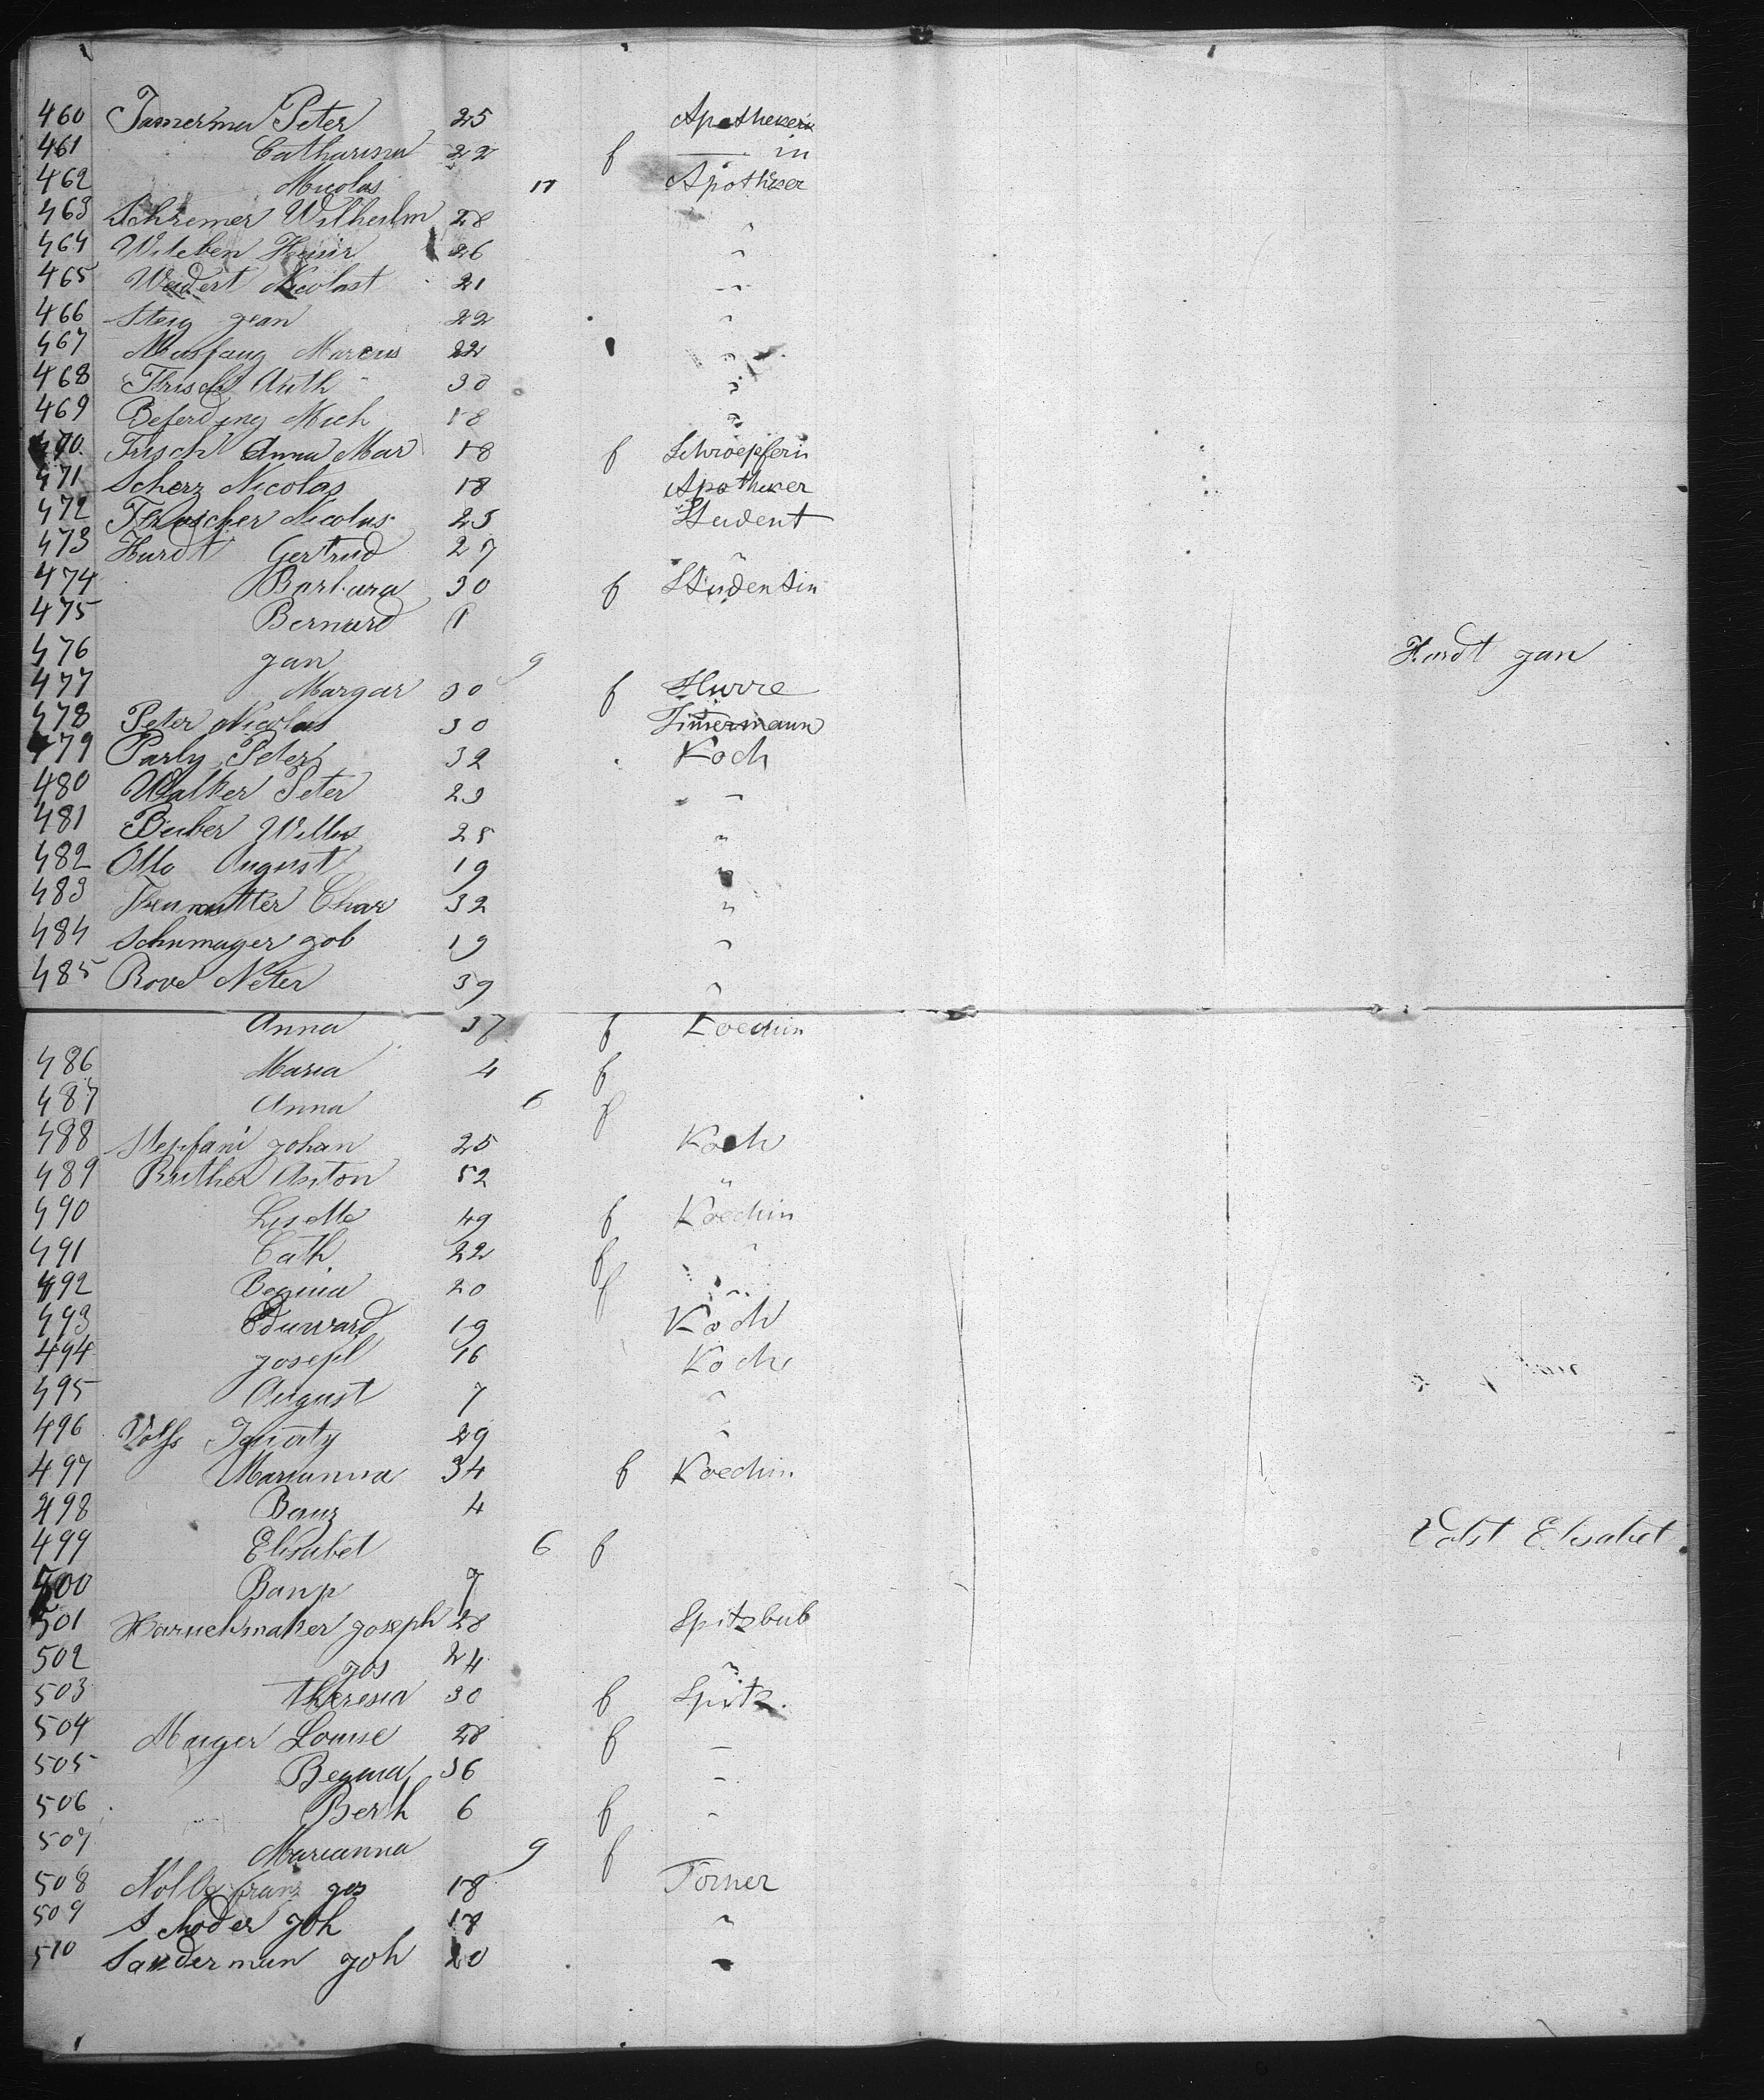 460 Tamerma Peter 25 Apotheker
461 Catharina 22 f —— in
462 Nicolas 11 Apotheker
463 Schremer Wilheulm 28 "
464 Witeben Henir 26 "
465 Weidert Nicolast 21 "
466 Steig jean 22 "
467 Masfang Marcus 22 "
468 Frisch Anth 30 "
469 Beferding Mich 18 "
470 Frisch Anna Mar 18 f Schroepferin
471 Scherz Nicolas 18 Apotheker
472 Froscher Nicolas 25 Student
473 Hardt Gertrud 27 "
474 Barbara 30 f Studentin
475 Bernard 1
476 jan 9 Hardt jan
477 Margar 30 f Hurre
478 Peter Nicolas 30 Timermann
479 Parly Peter 32 Koch
480 Walker Peter 23 "
481 Buber Willm 25 "
482 Otto August 19 "
483 Char 32 "
484 Schumager job 19 "
485 Rove Neter 39 "
Anna 37 f Koechin
486 Maria 4 f
487 Anna 6 f
488 Stepfani johan 25 Koch
489 Buther Anton 52 "
490 Lisette 49 f Köechin
491 Cath 22 f "
492 Regina 20 f "
493 Eduward 19 Koch
494 josepl 16 Koch
495 August 7 "
496 Ignaty 29 "
497 Marianna 34 f Koechin
498 4
499 Elisabet 6 f Volst Elisabet
500 7
501 Haruckmaker joseph 28 Spitzbub
502 jos 24 "
503 theresia 30 f Spitz.
504 Maiger Louise 28 f –
505 Regina 36 "
506 Berth 6 f "
507 Marianna 9 f
508 Nolle franz jos 18 Torner
509 Schoder joh 18 "
510 Sanderman joh 20 "